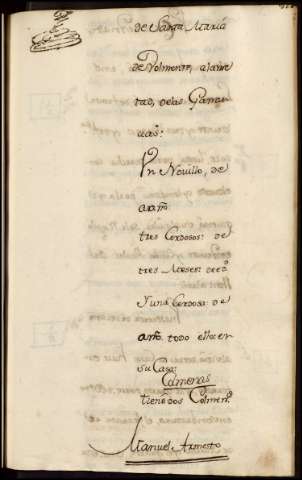 de Santa María
de Dolmente, a la mi
tad, de las Ganan
cias:
Un Novillo, de
a año
tres Cerdosos: de
tres Meses: de 
Y una Cerdosa: de
año. todo ello en
su Casa:
Colmenas
tiene dos Colmen.s
Manuel Armesto